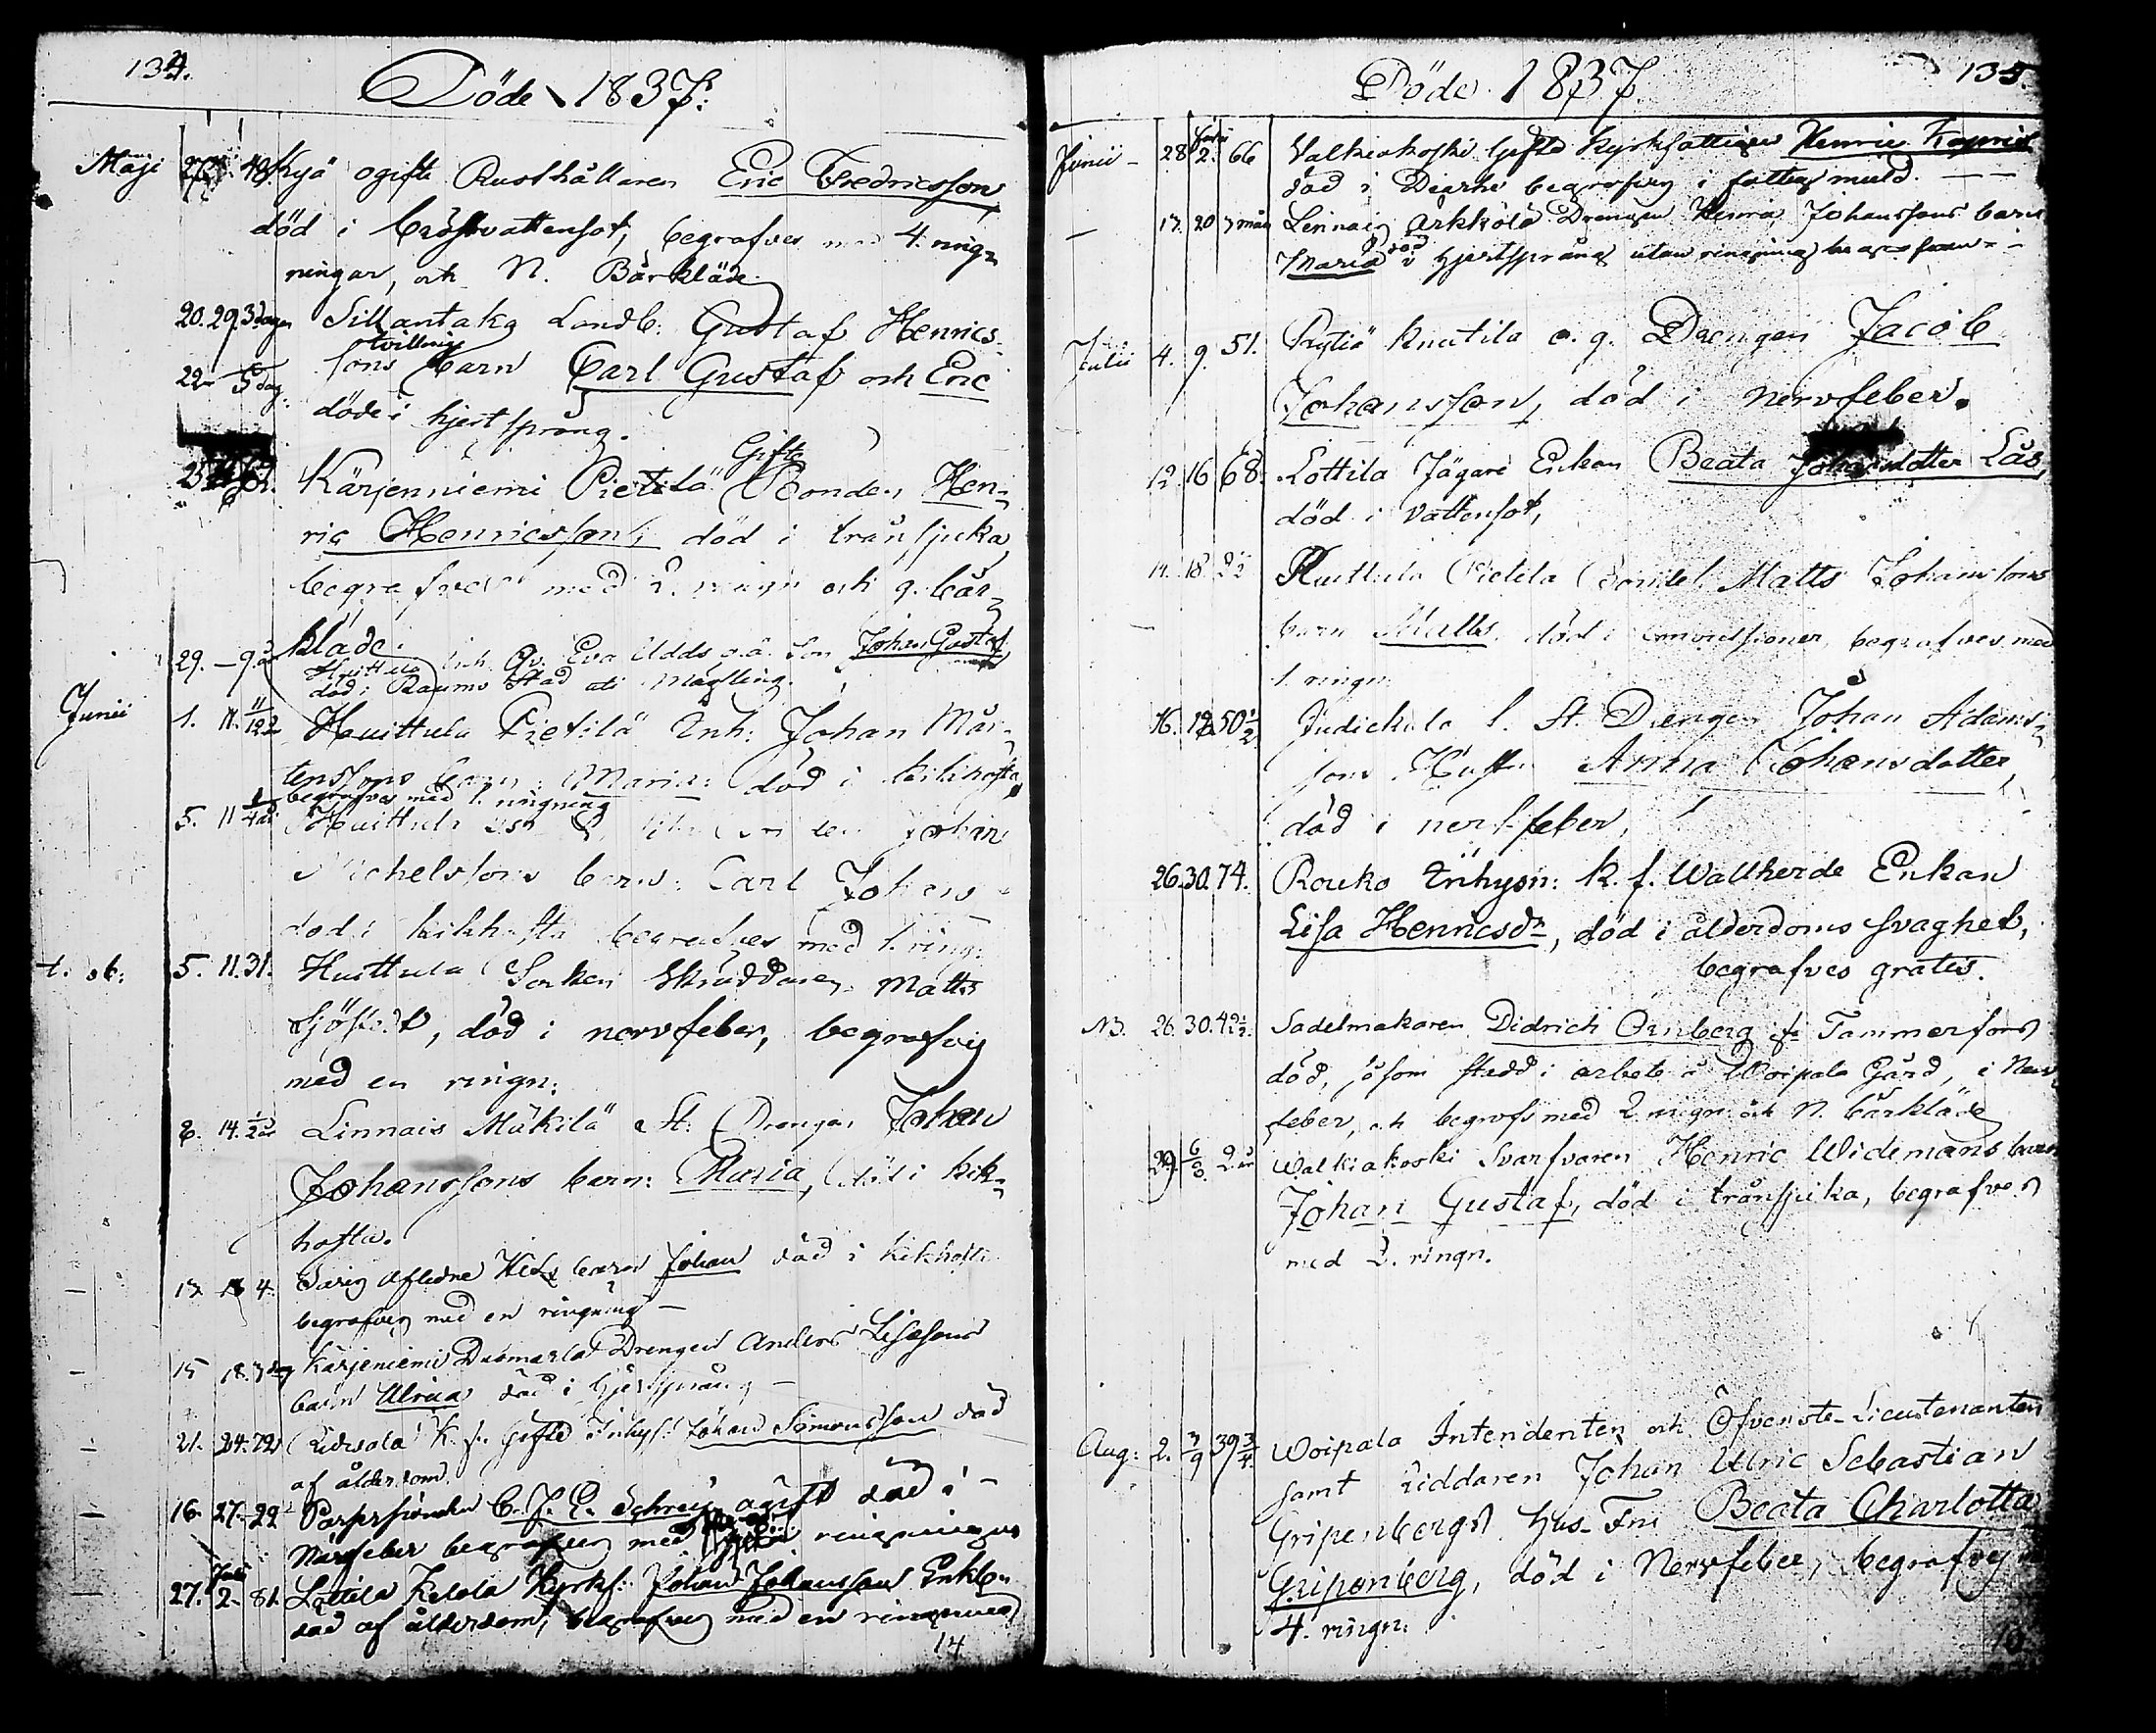 134.
Döde 1837.
Maji 40 Kyä ogifte Rusthållaren Eric Fredricsson
död i bröstvattensot, begrafves med 4. ring-
ningar, och N. Bårkläde
20. 29. 3 dagar Sillantaka Landb: Gustaf Henrics-
tvilling
22 5 dag. sons barn Carl Gustaf och Eric
döde i hjertsprång.
Gifte
25 Karjenniemi Pietilä Bonden Hen-
ric Henricsson, död i trånsjuka
begrafves med 2. ringn och g. bår-
kläde.
29. – 9 Huittula Inh. Qv. Eva Udds o.ä. Son Johan Gustaf
död i Raumo Stad uti Mässling.
Junii 1. 11. 11/12 Huittula Pietilä Inh: Johan Mår-
tenssons barn: Maria: död i kikhosta,
begrafves med 1. ringning
5. 11 Huittula Johan
Michelssons barn: Carl Johan
död i kikhosta begrafves med 1. ring:
5. 11. 31. Huittula Sonken Skräddaren Matts
Sjöstedt, död i nervfeber, begrafvig
med en ringn:
8. 14. 1/2 år Linnais Mäkilä St: Drengen Johan
Johanssons barn: Maria, död i kik-
hosta.
13 4. aflidne barn Johan död i kikhosta
begrafven med en ringning –
15 18. 3 Karjeniemi Drengen Anders
barn Ulrica död i hjertsprång –
21. 24. 72 K. f. Gifte Inhys: Johan Simonsson död
af ålderdom
16. 27. 22 C. J. E. ogift död i
Nervfeber begrafven med ringningar
Julii
27. 2. 81. Lottila Kelola Kyrkf: Johan Johansson Enkl.
död af ålderdom, begrafven med en ringning
14
135.
Döde 1837.
Julii
Junii – 28 2. 66 Valkiakoski Gifte Kyrkfattigen Henric
död i Diarhé begrafven i fattig muld. – –
– 17. 20 3 mån Linnais Arkkola Drengen Johanssons barn
Maria död i hjertsprång utan ringning begrafven –
Julii 4. 9. 51. Rytiö Knutila o. g. Drengen Jacob
Johansson, död i nervfeber.
12. 16 68. Lottila Jägare Enkan Beata Johansdotter Lås,
död i Vattensot,
14. 18. 2 1/2 Huittula Pietila Bondel. Matts Johanssons
barn Matts död i convulsioner, begrafves med
1. ringn:
16. 50 1/2 Judickala l. St. Drengen Johan Adams-
sons Hustru Anna Johansdotter,
död i nerf-feber,
26. 30. 74. Rouko Inhysn: k. f. Wallherde Enkan
Lisa Henricsdr, död i ålderdoms svaghet,
begrafves gratis.
NB. 26. 30. 42 1/2. Sadelmakaren Didrich Örnberg fr Tammerfors
död, såsom stadd i arbete å Woipala Gård, i Nerv-
feber, och begrafs med 2. ringn: och N. bårkläde
29 6/8. 2 år Walkiakoski Svarfvaren Henric Widemans barn
Johan Gustaf, död i trånsjuka, begrafves
med 2. ringn.
Aug: 2. 7/9 39 3/4. Woipala Intendenten och Öfverste-Lieutenanten
samt Riddaren Johan Ulric Sebastian
Gripenbergs Hus-Fru Beata Charlotta
Gripenberg, död i Nervfeber, begrafvig
4. ringn: